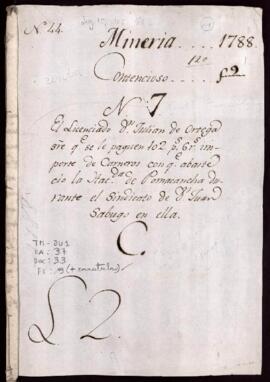 N.º 44.
Mineria .... 1788.
Contencioso
f 9
N 7
El Licenciado Dn Julian de Ortega
sre q.e se le paguen 102 p.s 6 r.s im
porte de Carneros con q.e abaste
cio la Hac.da de Pomacancha du
rante el Sindicato de Dn Juan
Sabugo en ella.
C.
TM-DU1
CA: 37
DOC: 33
FS: 9 (+ caratula)
L 2.